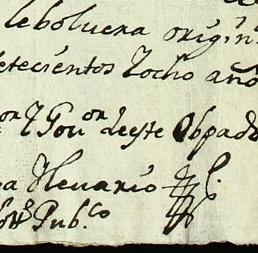 le boluera origin
etecientos Yocho año
on Y Gou.on deeste Obpado
a Henario
Pub.co